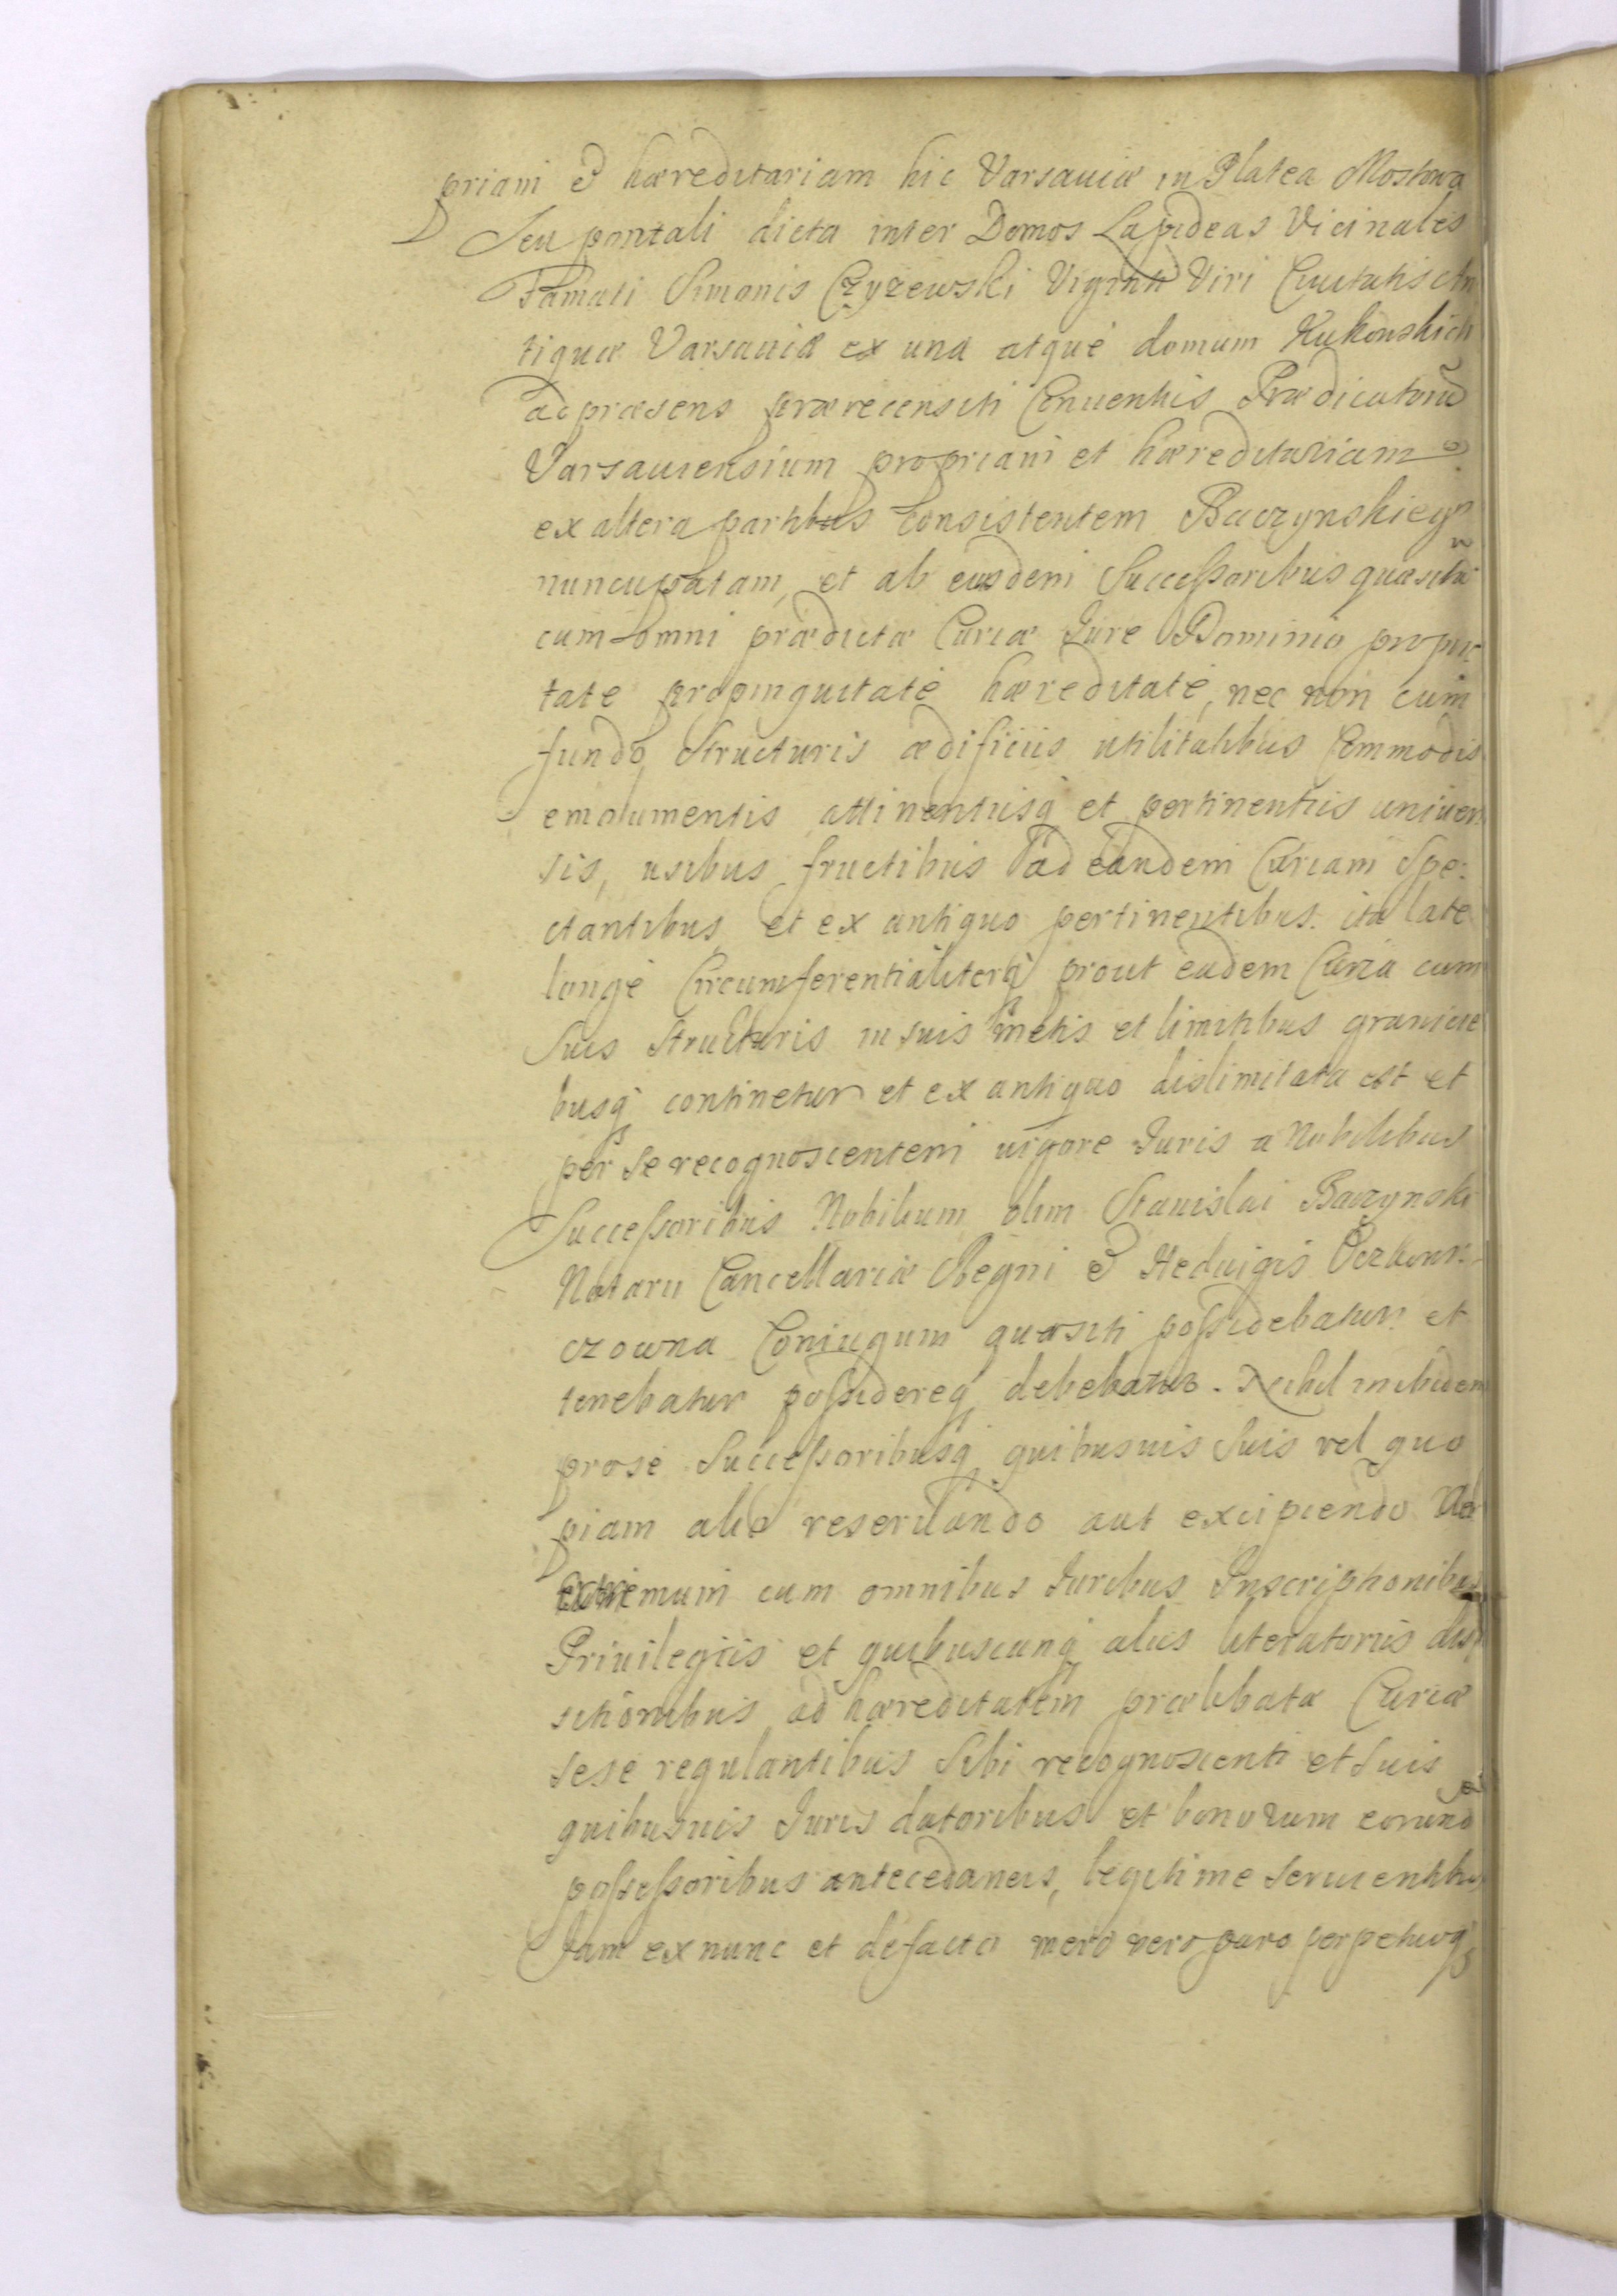 priam & hæreditariam hic Varsauiæ in Platea Mostowa
Seu pontali dicta inter Domos Lapideas Vicinales
Famati Simonis Czyzewski Viginti Viri Ciuitatis An
tiquæ Varsauiæ ex una atque domum Kukonskich
ad præsens prærecensiti Conuentus Prædicatorũ
Varsauiensium propriam et hæreditariam
ex altera partibus consistentem Baczynskiego
nuncupatam, et ab eiusdem Successoribus quæsitã
cum omni prædictæ Curiæ Jure Dominio proprie
tate propinquitate hæreditate, nec non cum
fundo, Structuris ædificiis utilitatibus Commodis
emolumentis attinentiisq et pertinentiis univer
sis, usibus fructibus ad eandem Curiam Spe:
ctantibus, et ex antiquo pertinentibus. ita late
longe Circumferentialiterq prout eadem Curia cum
Suis Structuris in suis metis et limitibus granicie
busq continetur et ex antiquo dislimitata est et
per Se recognoscentem uigore Juris a Nobilibus
Successoribus Nobilium olim Stanislai Baczynski
Notarii Cancellariæ Regni & Heduigis
czowna Coniugum quæsiti possidebatur et
tenebatur possidereq debebatur. Nihil inibidem
pro se Successoribusq quibusuis Suis vel quo
piam alio reseruando aut excipiendo Ad
extremum cum omnibus Juribus Inscriptionibus
Priuilegiis et quibuscunq aliis literatoriis disp
sitionibus ad hæreditatem prælibatæ Curiæ
sese regulantibus Sibi recognoscenti et Suis
quibusuis Juris datoribus et bonorum eorund
possessoribus antecedaneis, legitime Seruientibus
Jam ex nunc et de facto mero vero puro perpetuoq